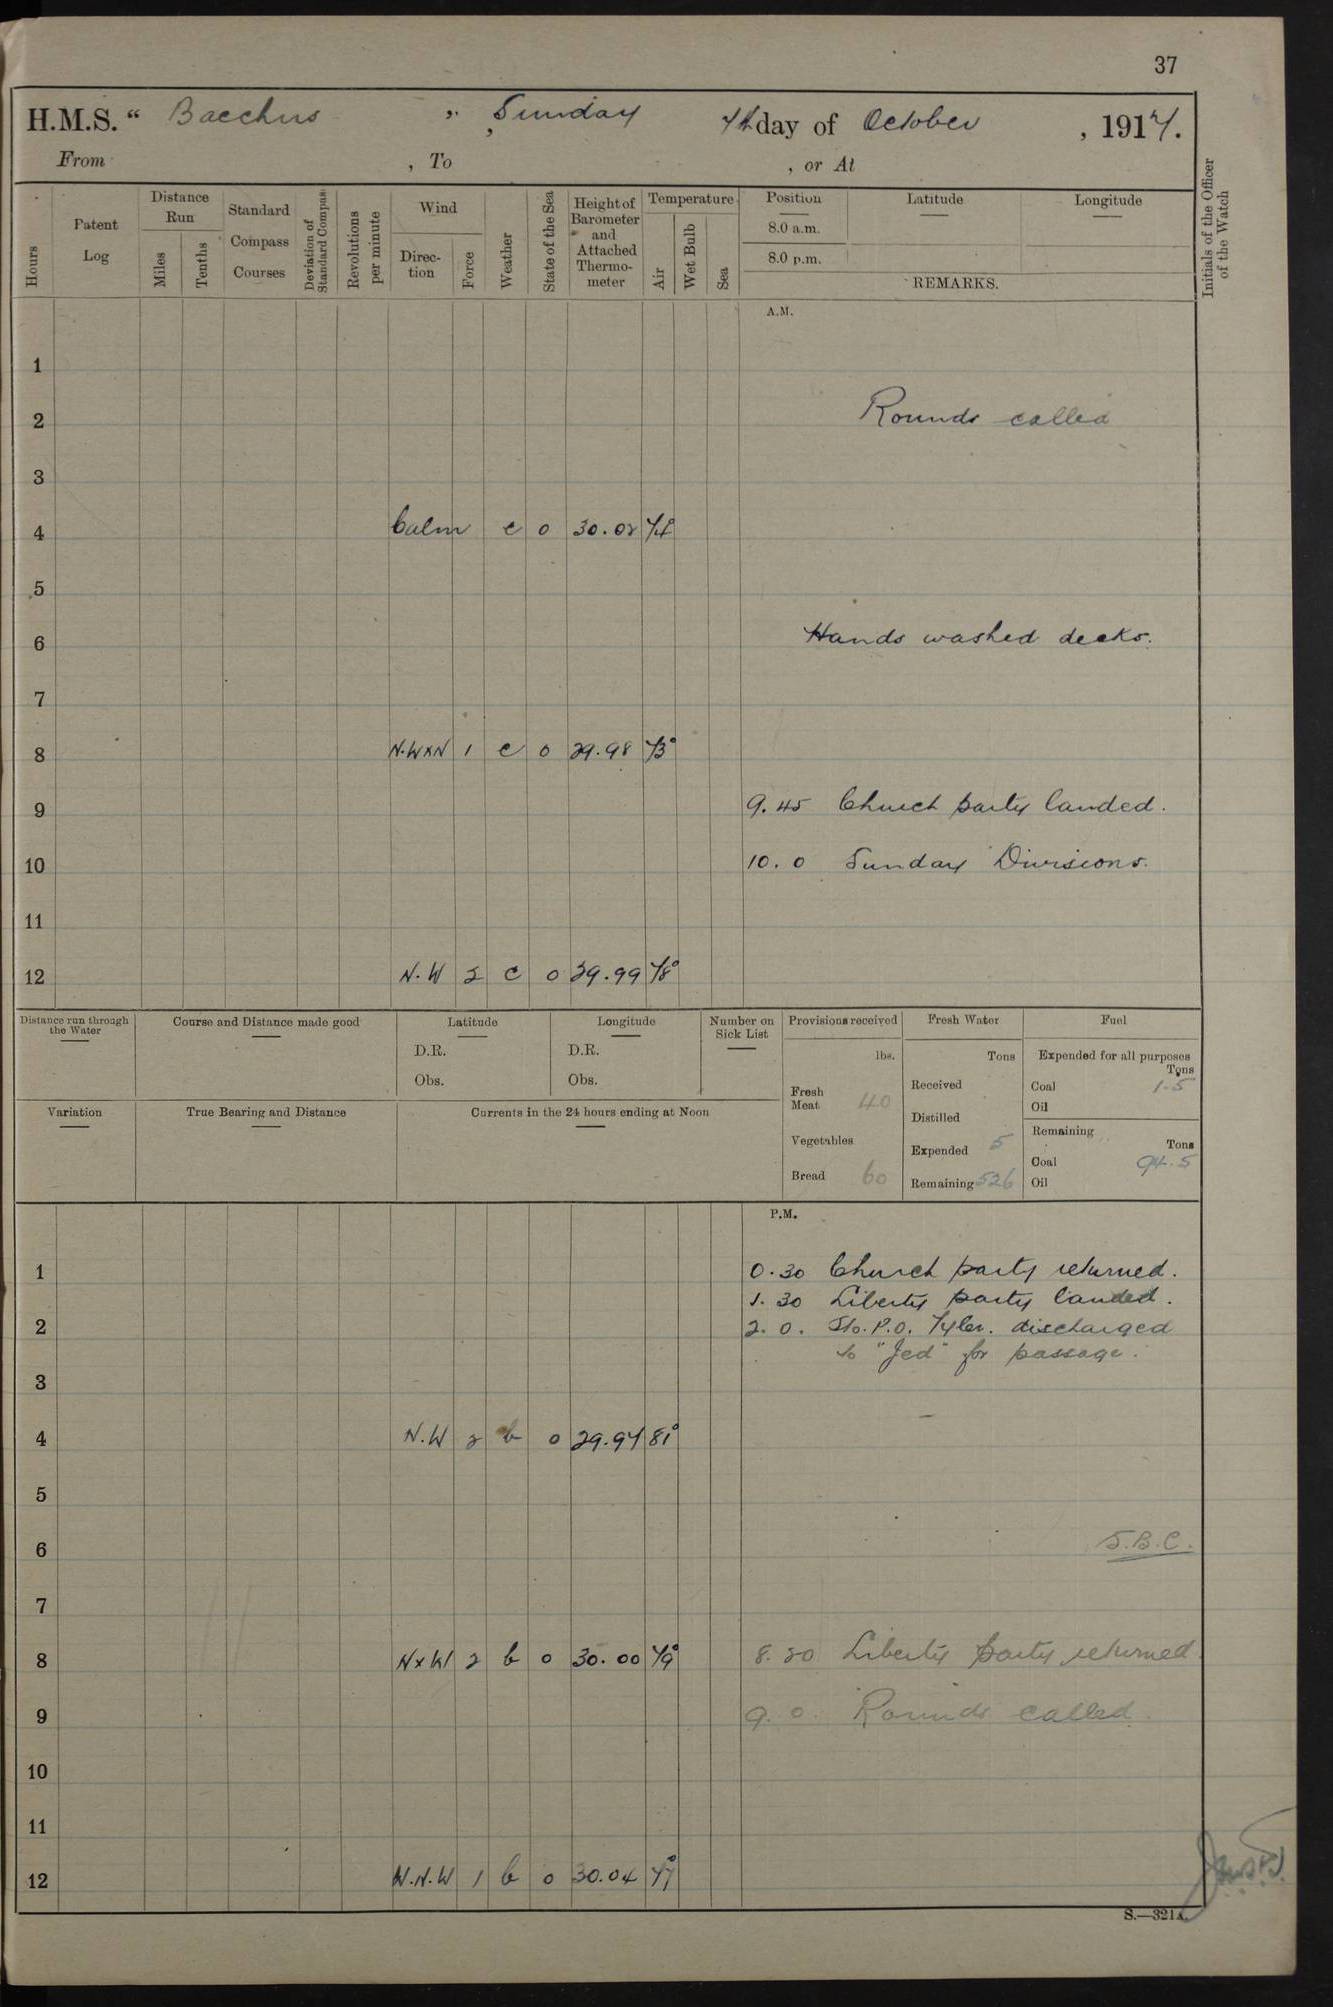 37
H.M.S. “ Bacchus ”, Sunday 7th day of October , 1917.
From , To , or At
Hours
Patent Log
Distance Run
Miles
Tenths
Standard Compass Courses
Deviation of Standard Compass
Revolutions per minute
Wind
Direction
Force
Weather
State of the Sea
Height of Barometer and Attached Thermometer
Temperature
Air
Wet Bulb
Sea
Position
8.0 a.m.
8.0 p.m.
Latitude
Longitude
REMARKS.
Initials of the Officer of the Watch
A.M.
1
2 Rounds called
3
4 Calm c 0 30.02 74°
5
6 Hands washed decks.
7
8 N.WxN 1 c 0 29.98 73°
9 9.45 Church party landed.
10 10.0 Sunday Divisions.
11
12 N.W 2 c 0 29.99 78°
Distance run through the Water
Course and Distance made good
Latitude
D.R.
Obs.
Longitude
D.R.
Obs.
Number on Sick List
Provisions received
lbs.
Fresh Meat 40
Vegetables
Bread 60
Fresh Water
Tons
Received
Distilled
Expended 5
Remaining 526
Fuel
Expended for all purposes
Tons
Coal 1.5
Oil
Remaining
Tons
Coal 94.5
Oil
Variation
True Bearing and Distance
Currents in the 24 hours ending at Noon
P.M.
0.30 Church party returned.
1
1.30 Liberty party landed.
2 2.0. Sto. P.O. Tyler. discharged
to "Jed" for passage.
3
4 N.W 2 b 0 29.97 81°
5
6 S.B.C.
7
8 NxW 2 b 0 30.00 79° 8.30 Liberty party returned
9 9.0. Rounds called.
10
11
12 N.N.W 1 b 0 30.04 77°
S.—321A.